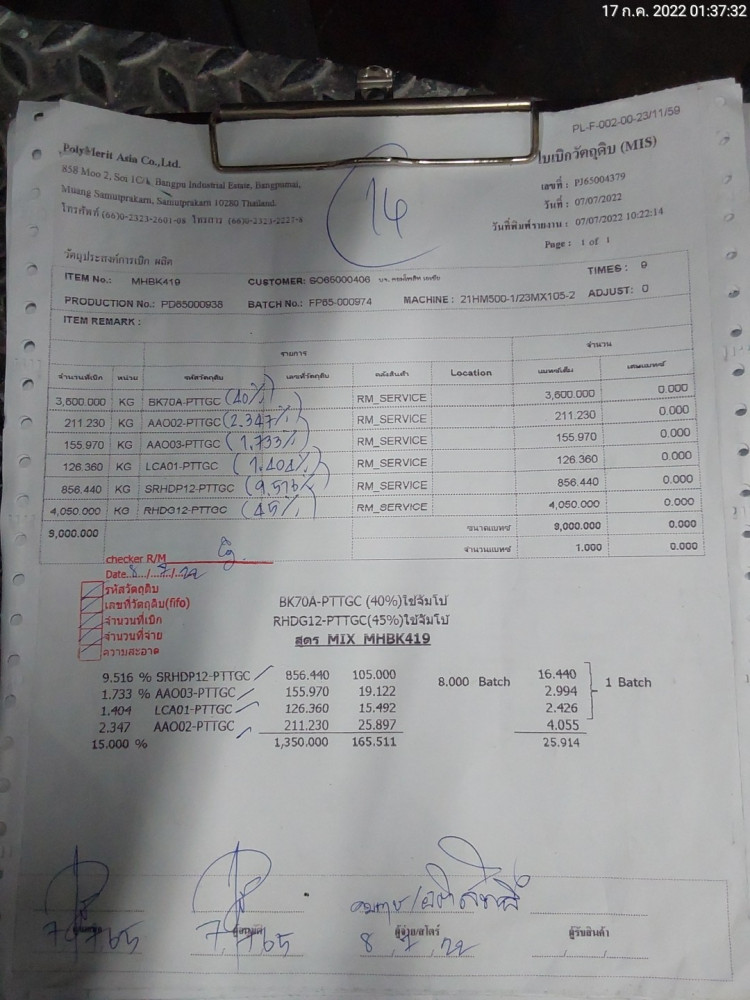 17 ก.ค. 2022 01:37:32
PL-F-002-00-23/11/59
PolyMerit Asia Co.,Ltd.
ใบเบิกวัตถุดิบ (MIS)
858 Moo 2, Soi 1C/1, Bangpu Industrial Estate, Bangpumai,
Muang Samutprakarn, Samutprakarn 10280 Thailand.
โทรศัพท์ (66)0-2323-2601-08 โทรสาร (66)0-2323-2227-8
14
เลขที่ : PJ65004379
วันที่ : 07/07/2022
วันที่พิมพ์รายงาน : 07/07/2022 10:22:14
Page : 1 of 1
วัตถุประสงค์การเบิก ผลิต
ITEM No.: MHBK419 CUSTOMER: SO65000406 TIMES : 9
PRODUCTION No.: PD65000938 BATCH No.: FP65-000974 MACHINE : 21HM500-1/23MX105-2 ADJUST: 0
ITEM REMARK :
รายการ จำนวน
จำนวนที่เบิก หน่วย รหัสวัตถุดิบ เลขที่วัตถุดิบ คลังสินค้า Location แบทซ์เต็ม เศษแบทซ์
3,600.000 KG BK70A-PTTGC (40%) RM_SERVICE 3,600.000 0.000
211.230 KG AAO02-PTTGC (2.347%) RM_SERVICE 211.230 0.000
155.970 KG AAO03-PTTGC (1.733%) RM_SERVICE 155.970 0.000
126.360 KG LCA01-PTTGC (1.404%) RM_SERVICE 126.360 0.000
856.440 KG SRHDP12-PTTGC (9.516%) RM_SERVICE 856.440 0.000
4,050.000 KG RHDG12-PTTGC (45%) RM_SERVICE 4,050.000 0.000
9,000.000 ขนาดแบทซ์ 9,000.000 0.000
จำนวนแบทซ์ 1.000 0.000
checker R/M
Date 8/7/22
รหัสวัตถุดิบ
เลขที่วัตถุดิบ(fifo)
จำนวนที่เบิก
จำนวนที่จ่าย
ความสะอาด
BK70A-PTTGC (40%)ใช้จัมโบ้
RHDG12-PTTGC(45%)ใช้จัมโบ้
สูตร MIX MHBK419
9.516 % SRHDP12-PTTGC 856.440 105.000 8.000 Batch 16.440
1.733 % AAO03-PTTGC 155.970 19.122 2.994 1 Batch
1.404 LCA01-PTTGC 126.360 15.492 2.426
2.347 AAO02-PTTGC 211.230 25.897 4.055
15.000 % 1,350.000 165.511 25.914
7/7/65 7/7/65 ผู้จ่าย/สโตร์ ผู้รับสินค้า
8 7 22